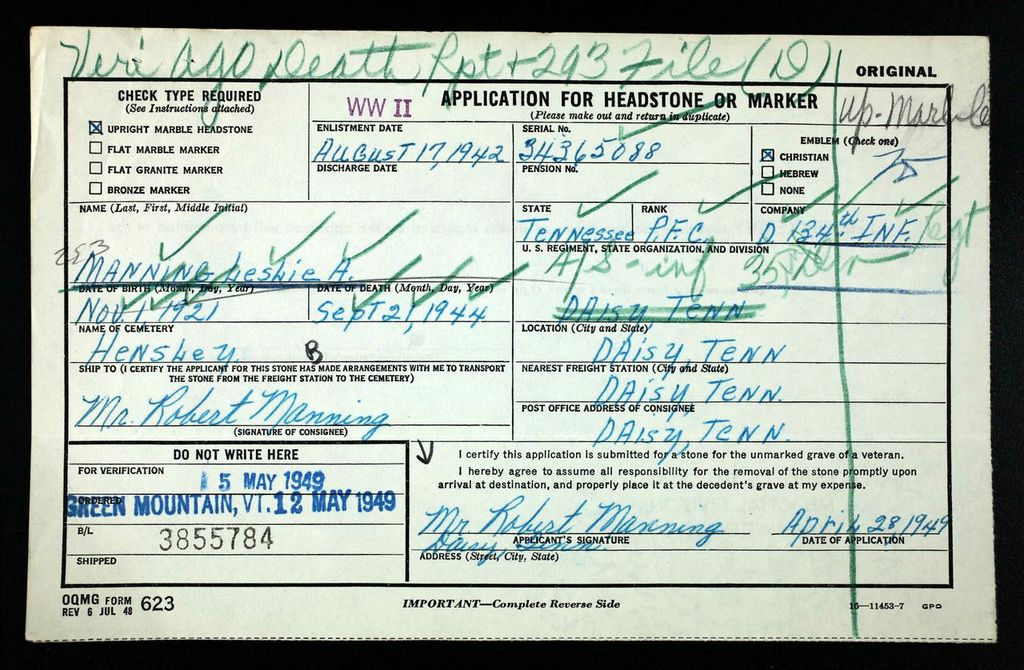 Veri AGO Death Rpt + 293 File (D)
ORIGINAL
CHECK TYPE REQUIRED
(See Instructions attached)
☒ UPRIGHT MARBLE HEADSTONE
☐ FLAT MARBLE MARKER
☐ FLAT GRANITE MARKER
☐ BRONZE MARKER
WW II
APPLICATION FOR HEADSTONE OR MARKER
(Please make out and return in duplicate)
up-Marble
ENLISTMENT DATE
AUGUST 17, 1942
DISCHARGE DATE
SERIAL No.
34365088
PENSION No.
EMBLEM (Check one)
☒ CHRISTIAN
☐ HEBREW
☐ NONE
75
NAME (Last, First, Middle Initial)
293
MANNING Leslie A.
STATE
Tennessee
RANK
P.F.C.
COMPANY
D 134th INF. Regt
U. S. REGIMENT, STATE ORGANIZATION, AND DIVISION
inf 35
DAisy Tenn
DATE OF BIRTH (Month, Day, Year)
Nov. 1 1921
DATE OF DEATH (Month, Day, Year)
Sept 21, 1944
NAME OF CEMETERY
Hensley B
LOCATION (City and State)
DAisy, TENN
SHIP TO (I CERTIFY THE APPLICANT FOR THIS STONE HAS MADE ARRANGEMENTS WITH ME TO TRANSPORT
THE STONE FROM THE FREIGHT STATION TO THE CEMETERY)
Mr. Robert Manning
(SIGNATURE OF CONSIGNEE)
NEAREST FREIGHT STATION (City and State)
DAisy TENN.
POST OFFICE ADDRESS OF CONSIGNEE
DAisy, TENN.
DO NOT WRITE HERE
FOR VERIFICATION
5 MAY 1949
ORDERED
GREEN MOUNTAIN, VT. 12 MAY 1949
B/L
3855784
SHIPPED
I certify this application is submitted for a stone for the unmarked grave of a veteran.
I hereby agree to assume all responsibility for the removal of the stone promptly upon
arrival at destination, and properly place it at the decedent's grave at my expense.
Mr Robert Manning April 28, 1949
APPLICANT'S SIGNATURE DATE OF APPLICATION
Daisy, Tenn.
ADDRESS (Street, City, State)
OQMG FORM
REV 6 JUL 48 623
IMPORTANT—Complete Reverse Side
16—11453-7 GPO